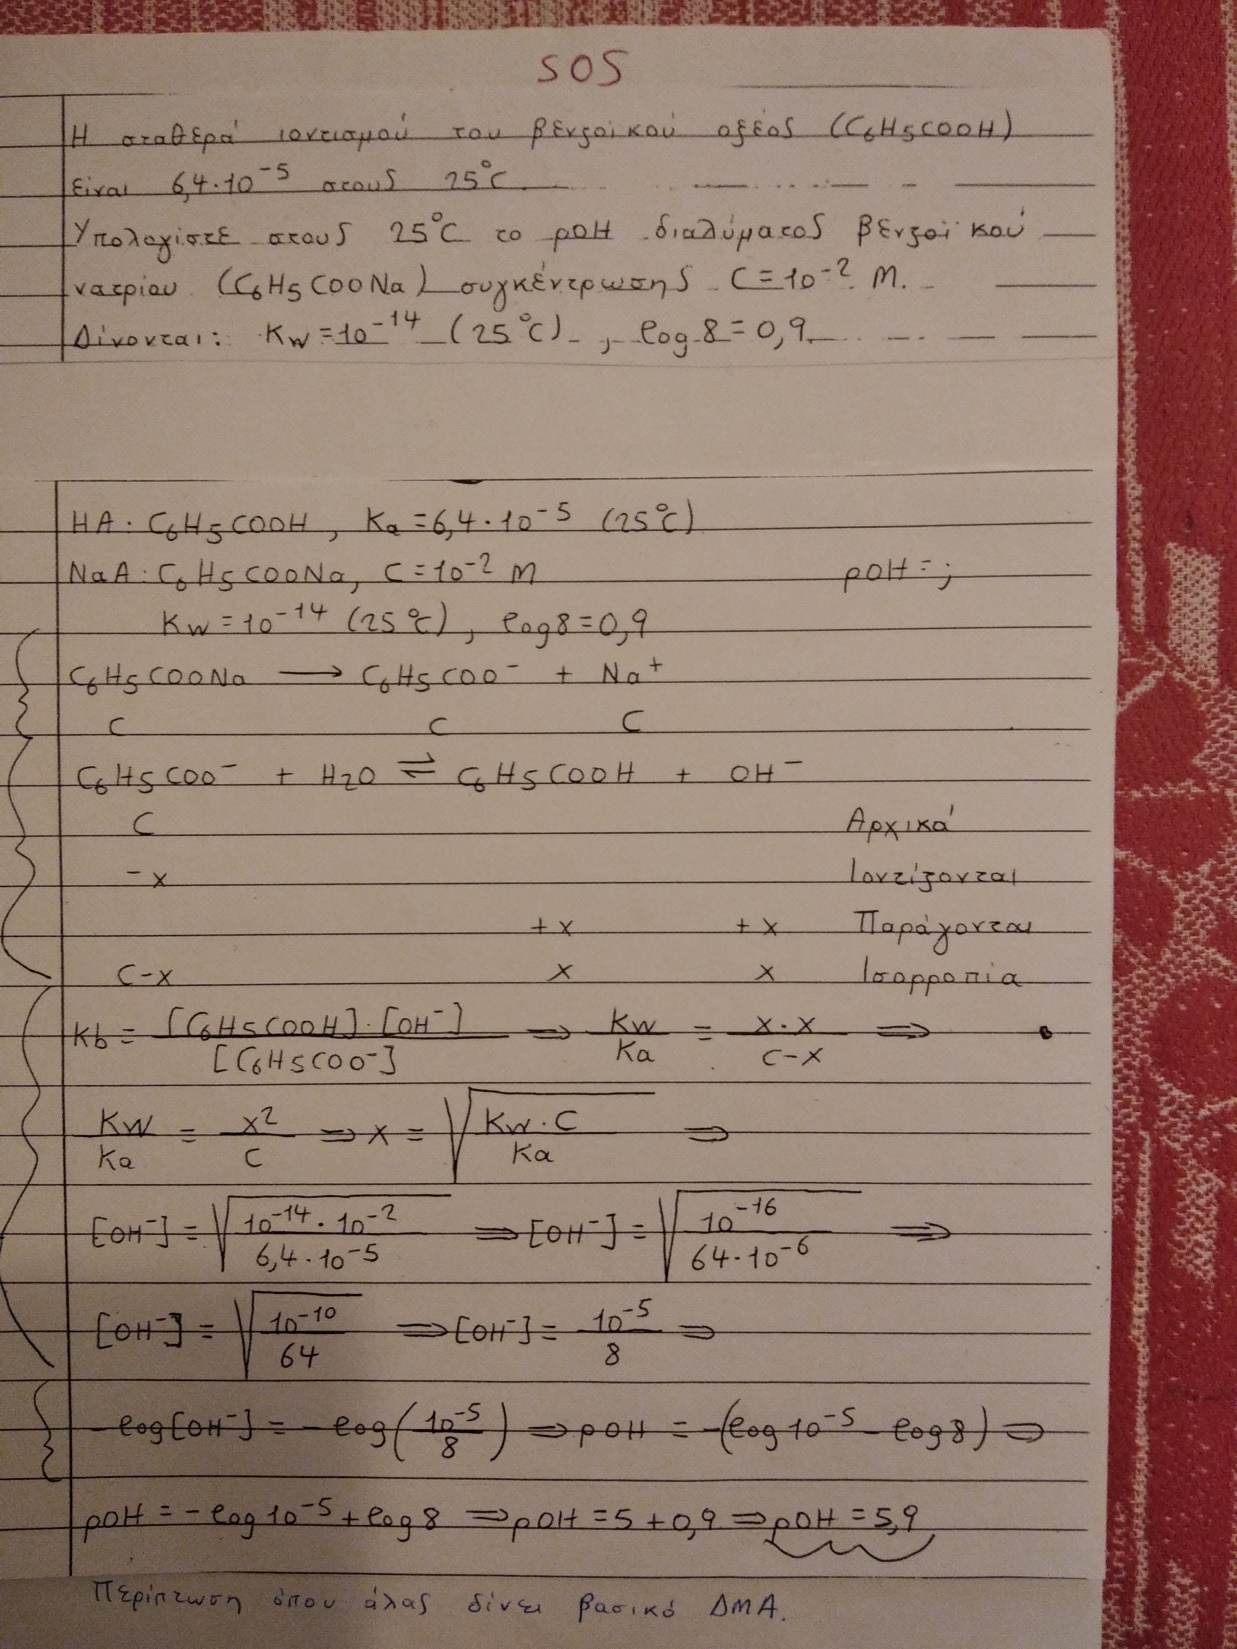 SOS
Η σταθερά ιοντισμού του βενζοϊκού οξέος (C₆H₅COOH)
είναι 6,4·10⁻⁵ στους 25°C
Υπολογίστε στους 25°C το pOH διαλύματος βενζοϊκού
νατρίου (C₆H₅COONa) συγκέντρωσης C=10⁻² M.
Δίνονται: Kw=10⁻¹⁴ (25°C), log8=0,9
HA: C₆H₅COOH, Ka=6,4·10⁻⁵ (25°C)
NaA: C₆H₅COONa, C=10⁻² M pOH=;
Kw=10⁻¹⁴ (25°C), log8=0,9
C₆H₅COONa ⟶ C₆H₅COO⁻ + Na⁺
C C C
C₆H₅COO⁻ + H₂O ⇌ C₆H₅COOH + OH⁻
C Αρχικά
-x Ιοντίζονται
+x +x Παράγονται
C-x x x Ισορροπία
Kb = [C₆H₅COOH]·[OH⁻] / [C₆H₅COO⁻] ⇒ Kw/Ka = x·x/(C-x) ⇒
Kw/Ka = x²/C ⇒ x = √(Kw·C/Ka) ⇒
[OH⁻] = √(10⁻¹⁴·10⁻²/6,4·10⁻⁵) ⇒ [OH⁻] = √(10⁻¹⁶/64·10⁻⁶) ⇒
[OH⁻] = √(10⁻¹⁰/64) ⇒ [OH⁻] = 10⁻⁵/8 ⇒
-log[OH⁻] = -log(10⁻⁵/8) ⇒ pOH = -(log10⁻⁵ - log8) ⇒
pOH = -log10⁻⁵ + log8 ⇒ pOH = 5+0,9 ⇒ pOH = 5,9
Περίπτωση όπου άλας δίνει βασικό ΔΜΑ.